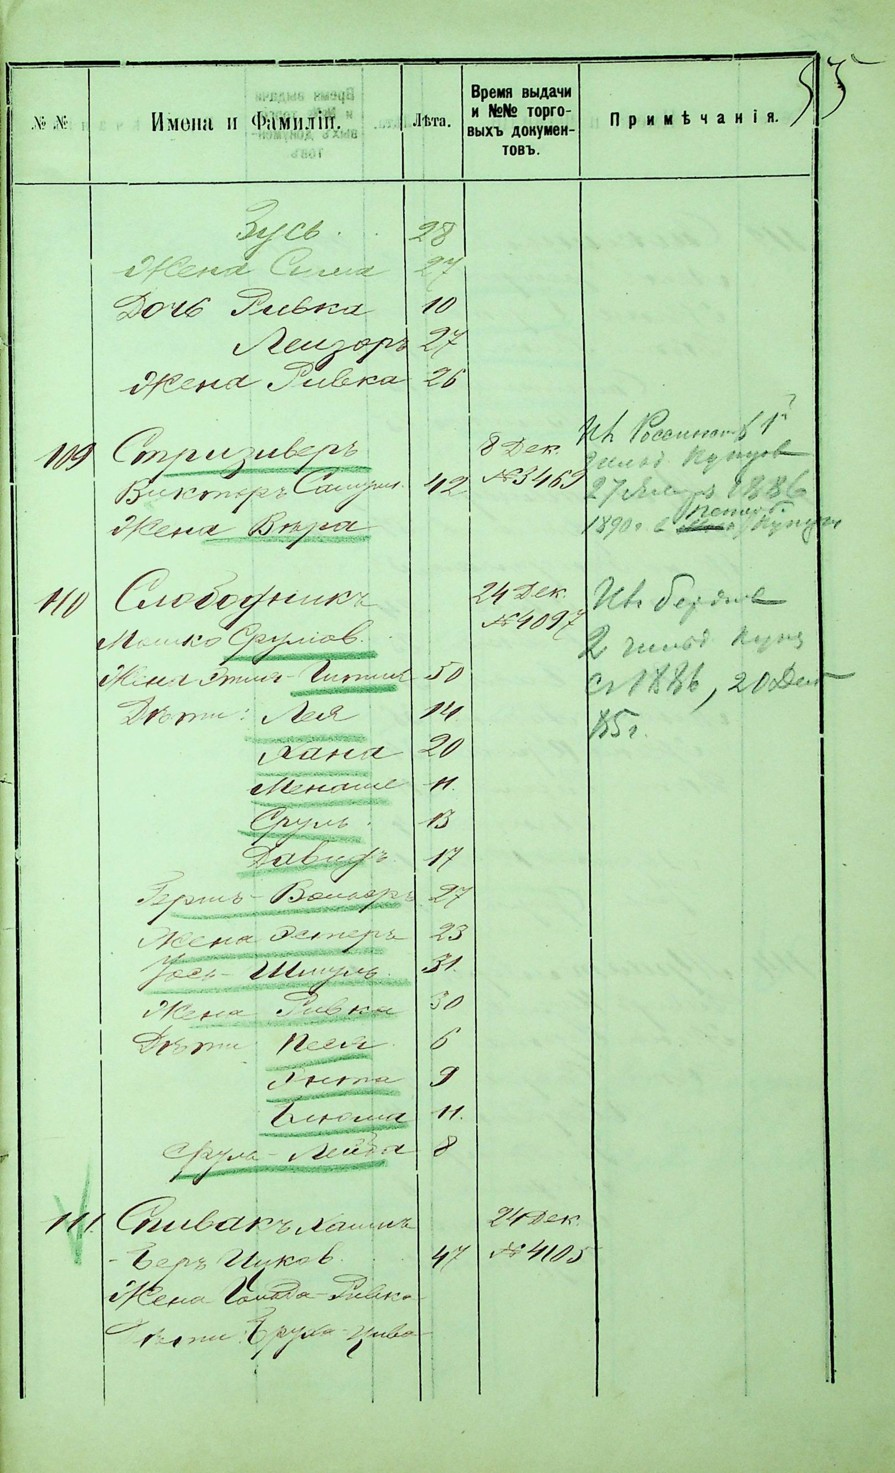 55
№ №
Имена и Фамиліи.
Лѣта.
Время выдачи
и №№ торго-
выхъ докумен-
товъ.
Примѣчанія.
Зусь 28
Жена Сима 27
Дочь Ривка 10
Лейзоръ 27
Жена Ривка 26
109 Стризиверъ 8 Дек.
Викторъ Самуил. 42 № 3469
Жена Вѣра
27 Янв 1886
1890 г. в
110 Слободникъ 24 Дек.
Мошко Срулов. № 4097
2 гильд куп
Жена Этля-Гитля 50
с 1886, 20 Дек
Дѣти: Лея 14
85 г.
Хана 20
Менаше 11.
Сруль 13
Давидъ 17
Гершъ-Вольфъ 27
Жена Эстеръ 23
Иось-Шмуль 31.
Жена Ривка 30
Дѣти Песя 6
Ента 9
Блюма 11.
Срулъ-Лейба 8
111. Спивакъ Хаимъ 24 Дек.
-Беръ Ицков. 47 № 4105
Жена Ривка
Дѣти Бруха-Цива